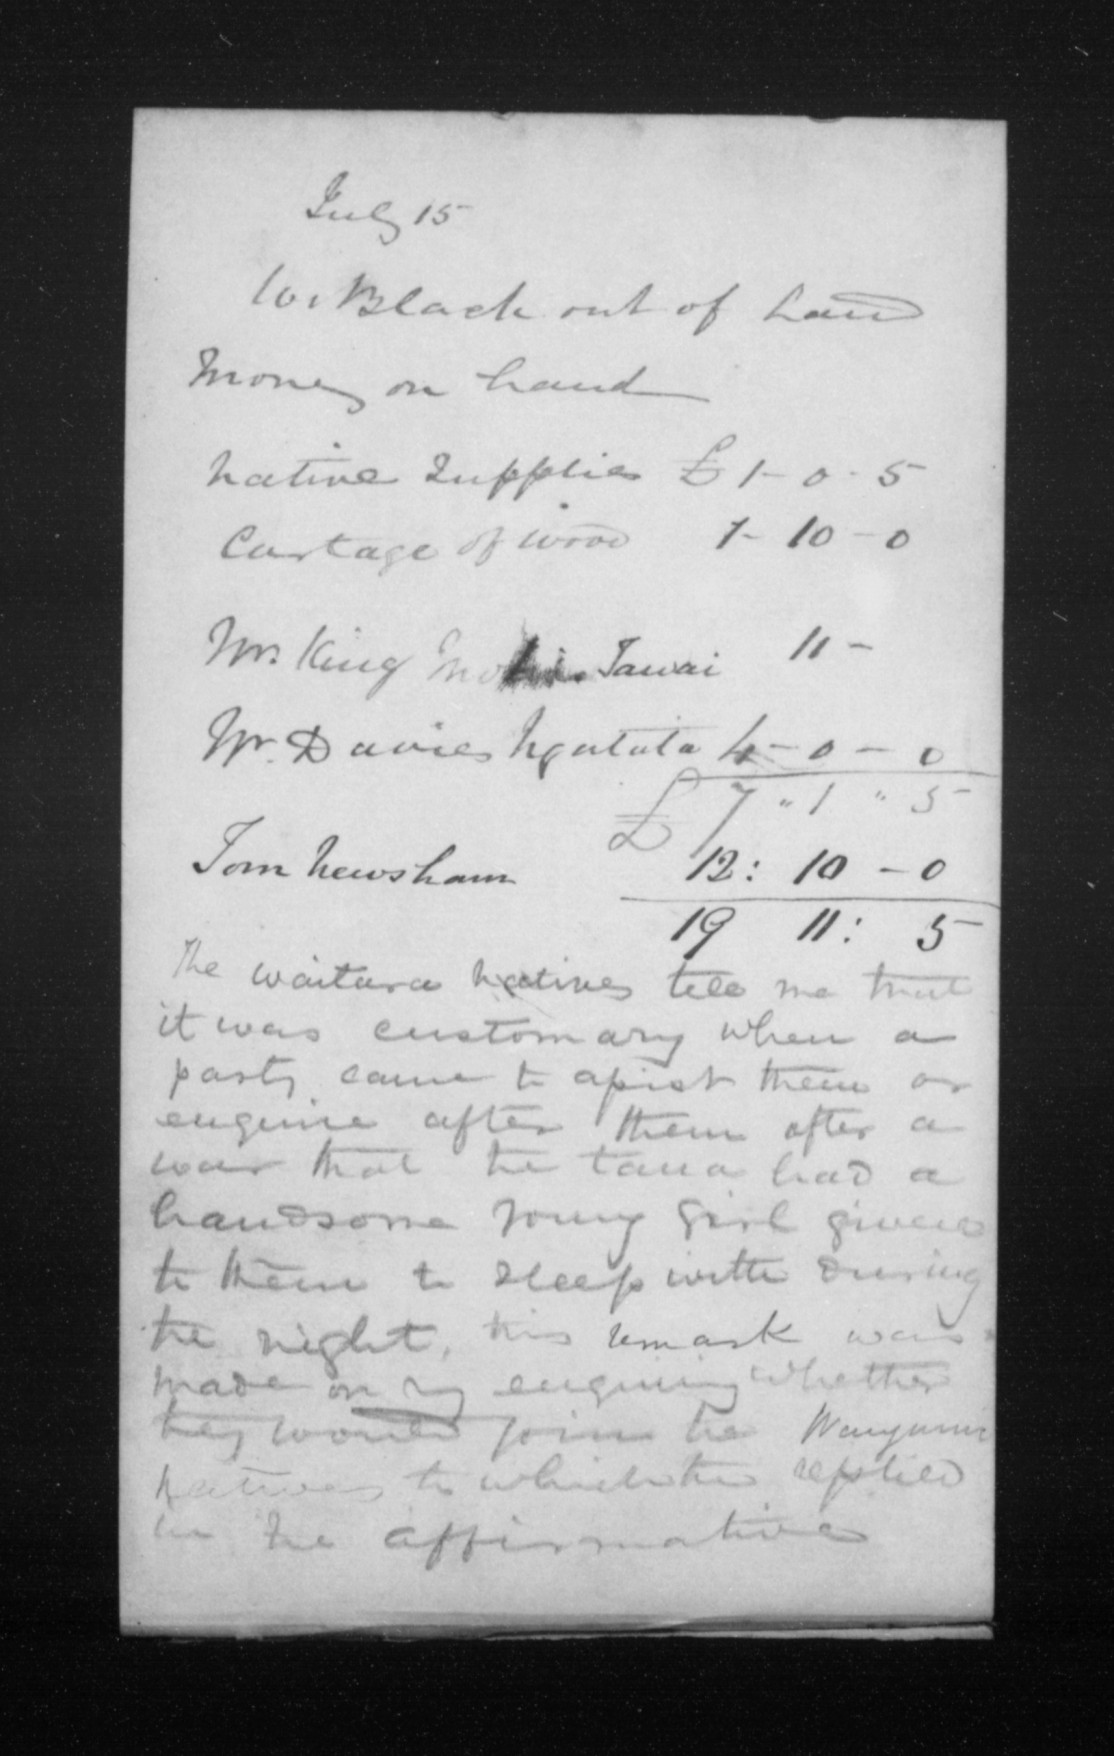 July 15
W. Black out of hand
Money on hand
Native Supplies £ 1 - 0 - 5
Cartage of wood 1 - 10 - 0
Mr. King Tawai 11 -
Mr. Davies Ngatata 4 - 0 - 0
£ 7 " 1 " 5
Tom Newsham 12 : 10 - 0
19 11 : 5
The Waitara natives tell me that
it was customary when a
party came to assist them or
enquire after them after a
war that the taua had a
handsome young girl given
to them to sleep with during
the night. this remark was
made on my enquiring whether
they would join the
natives to which the replied
in the affirmative